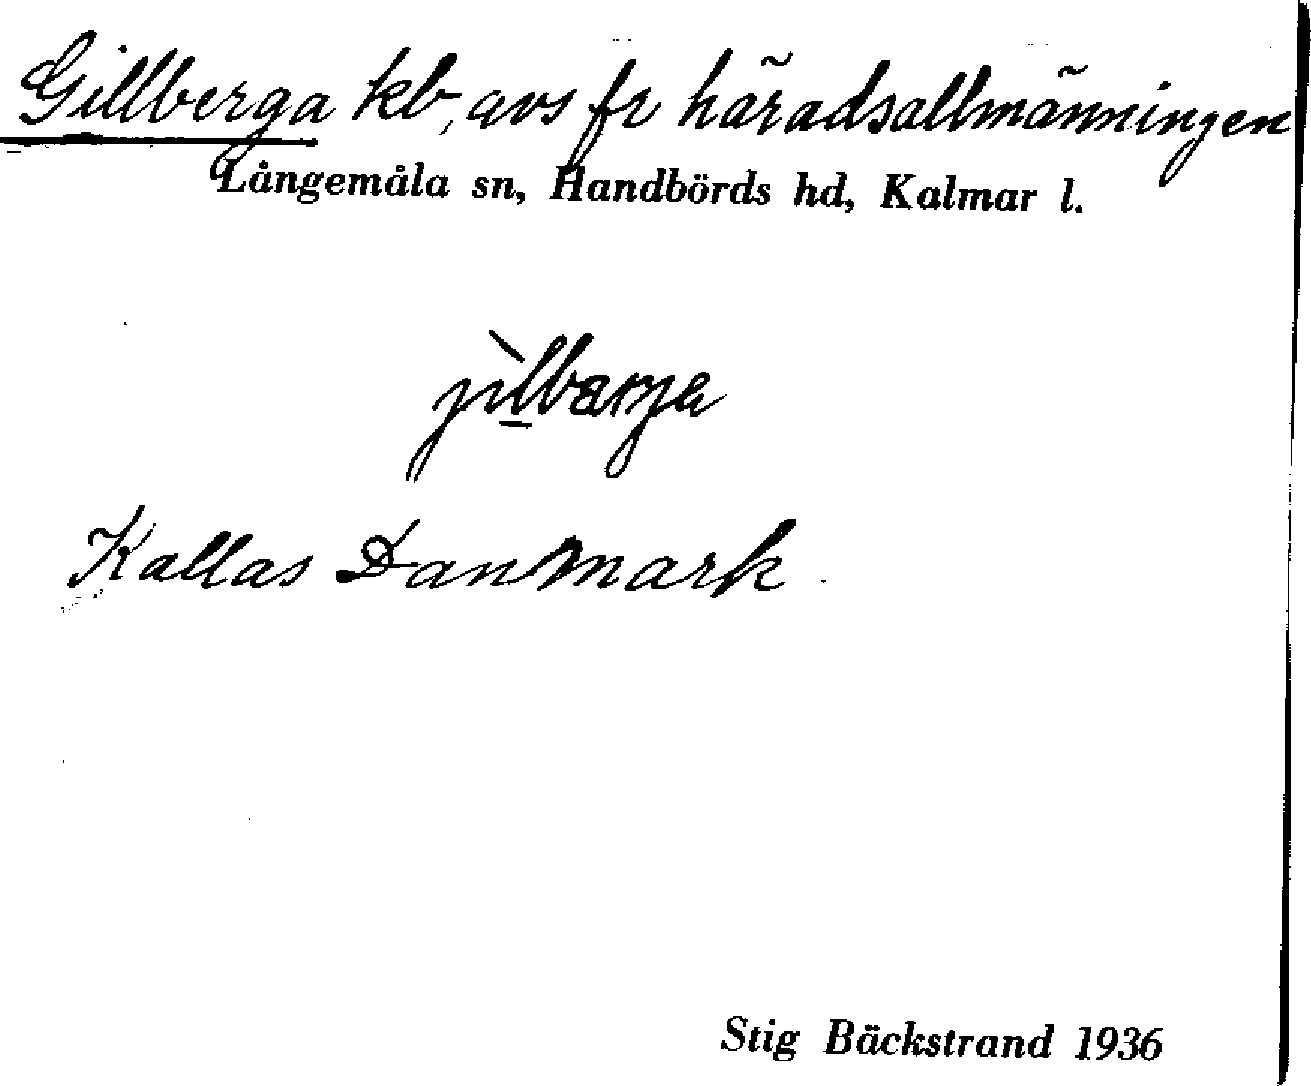 Gillberga kb, avs fr häradsallmänningen
Långemåla sn, Handbörds hd, Kalmar l.
jìlbarja
Kallas Danmark
Stig Bäckstrand 1936